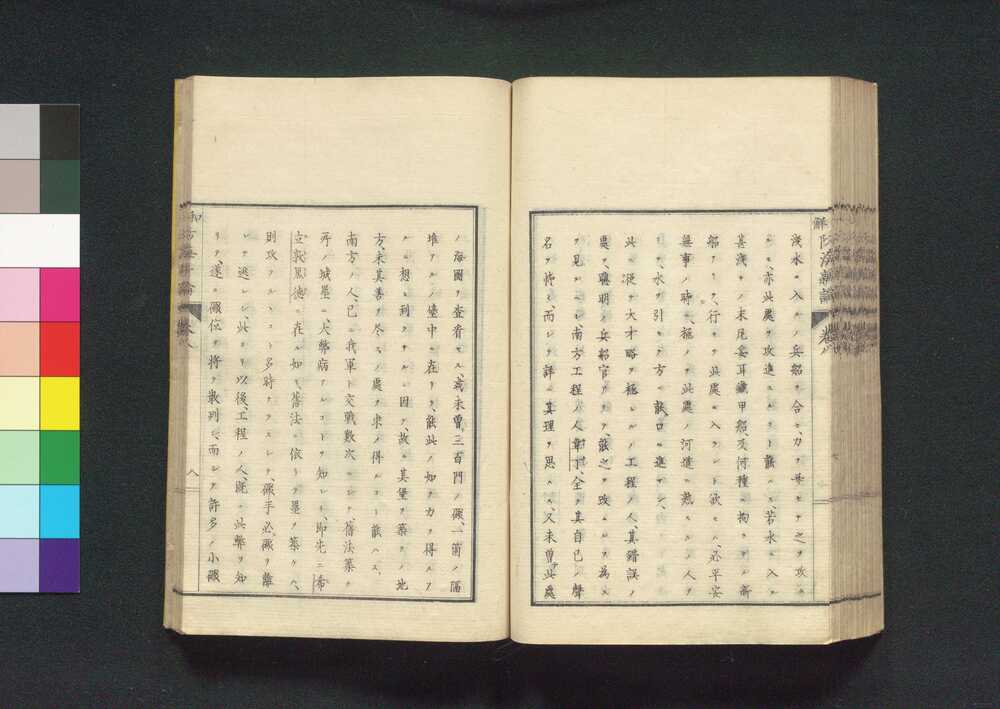 淺水ニ入ルノ兵船ヲ合セ、力ヲ并セテ之ヲ攻
ルモ、亦此處ヲ攻進スルコト能ハス、若水ニ入ル
甚淺キノ末尼妥耳鐵甲船、及何種ニ拘ラザル新
船アリテ、行キテ此處ニ入ラント欲セハ、必平安
無事ノ時ニ、極メテ此處ノ河道ニ熟スル人ヲ
シテ、水ヲ引カシメ方ニ能口ニ進マシム、
此ニ從テ大才略ヲ極ムルノ工程ノ人、其錯誤ノ
處ヲ、聰明ノ兵船官アリテ、能之ヲ攻ムルヲ為スヲ
ヲ見ルヘシ、南方工程ノ人韋丁、全ク其自己ノ聲
名ヲ恃ミ、而シテ詳ニ真理ヲ思ハス、又未曾此處
ノ海圖ヲ查看セス、或未曾三百門ノ礮、一箇ノ隔
堆アルノ臺中ニ在リテ、能此ノ如キ力ヲ得ルヲ
ルニ想ヒ到ラサルニ因テ、故ニ其堡ヲ築クノ地
方、未其善ヲ尽スノ處ヲ求メ得ルコト能ハス、
南方ノ人、已ニ我軍ト交戰數次ニシテ、舊法築ク
所ノ城壘ニ、大弊病アルコトヲ知レリ、即先ニ希
立敦黑德ニ在ル如キ、舊法ニ依リテ壘ヲ築クヘ、
則攻ヲ受ルコト多時ナラスシテ、礮手必礮ヲ離
レテ逃レシ、此ヨリ以後、工程ノ人、既ニ此弊ヲ知
リテ、遂ニ礮位ヲ將テ散列シ、而シテ許多ノ小礮